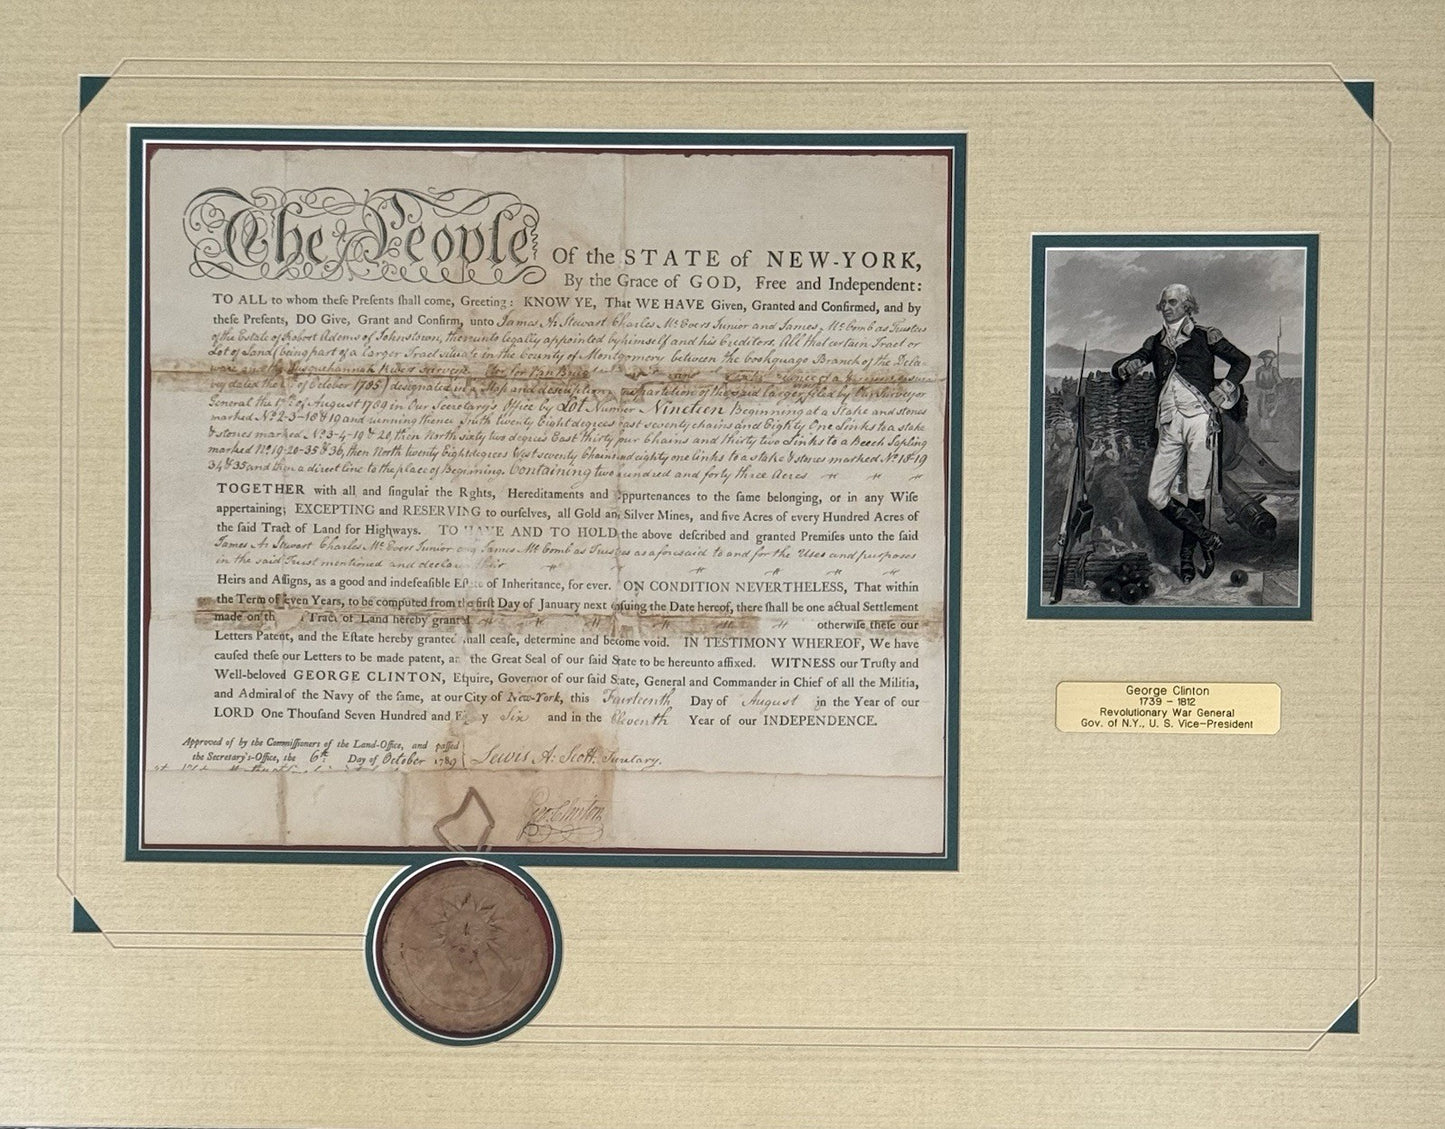 The People Of the STATE of NEW-YORK,
By the Grace of GOD, Free and Independent:
TO ALL to whom theſe Preſents ſhall come, Greeting: KNOW YE, That WE HAVE Given, Granted and Confirmed, and by
theſe Preſents, DO Give, Grant and Confirm, unto James A. Stewart Charles Mc Evers Junior and James Mc Comb as Trustees
of the Estate of Robert Adems of Johnstown, thereunto legally appointed by himself and his Creditors. All that certain Tract or
Lot of Land (being part of a larger Tract situate in the County of Montgomery between the Cookquago Branch of the Dela-
ware and the Susquehannah Rivers
of October 1785) designated in a Map and description partition of the said larger filed by Our Surveyor
General the 17th of August 1789 in Our Secretary's Office by Lot Number Nineteen Beginning at a Stake and stones
marked No 2-3-18 & 19 and running thence South twenty Eight degrees East seventy chains and Eighty One Links to a stake
& stones marked No 3-4-19 & 20, then North sixty two degrees East thirty four Chains and thirty two Links to a Beech Sapling
marked No 19-20-35 & 36, then North twenty Eight degrees West seventy Chains and eighty one links to a stake & stones marked No 18-19
34 & 35 and then a direct line to the place of Beginning. Containing two hundred and forty three Acres
TOGETHER with all and ſingular the Rights, Hereditaments and Appurtenances to the ſame belonging, or in any Wiſe
appertaining; EXCEPTING and RESERVING to ourſelves, all Gold and Silver Mines, and five Acres of every Hundred Acres of
the ſaid Tract of Land for Highways. TO HAVE AND TO HOLD the above deſcribed and granted Premiſes unto the ſaid
James A. Stewart Charles Mc Evers Junior and James Mc Comb as Trustees as aforesaid to and for the Uses and purposes
in the said Trust mentioned and their
Heirs and Aſſigns, as a good and indefeaſible Eſtate of Inheritance, for ever. ON CONDITION NEVERTHELESS, That within
the Term of Seven Years, to be computed from the firſt Day of January next enſuing the Date hereof, there ſhall be one actual Settlement
made on the Tract of Land hereby granted otherwiſe theſe our
Letters Patent, and the Eſtate hereby granted ſhall ceaſe, determine and become void. IN TESTIMONY WHEREOF, We have
cauſed theſe our Letters to be made patent, and the Great Seal of our ſaid State to be hereunto affixed. WITNESS our Truſty and
Well-beloved GEORGE CLINTON, Eſquire, Governor of our ſaid State, General and Commander in Chief of all the Militia,
and Admiral of the Navy of the ſame, at our City of New-York, this Fourteenth Day of August in the Year of our
LORD One Thouſand Seven Hundred and Eighty Six and in the Eleventh Year of our INDEPENDENCE.
Approved of by the Commiſſioners of the Land-Office, and paſſed
the Secretary's-Office, the 6th Day of October 1789 Lewis A. Scott. Secretary.
Geo. Clinton
George Clinton
1739 - 1812
Revolutionary War General
Gov. of N.Y., U. S. Vice-President